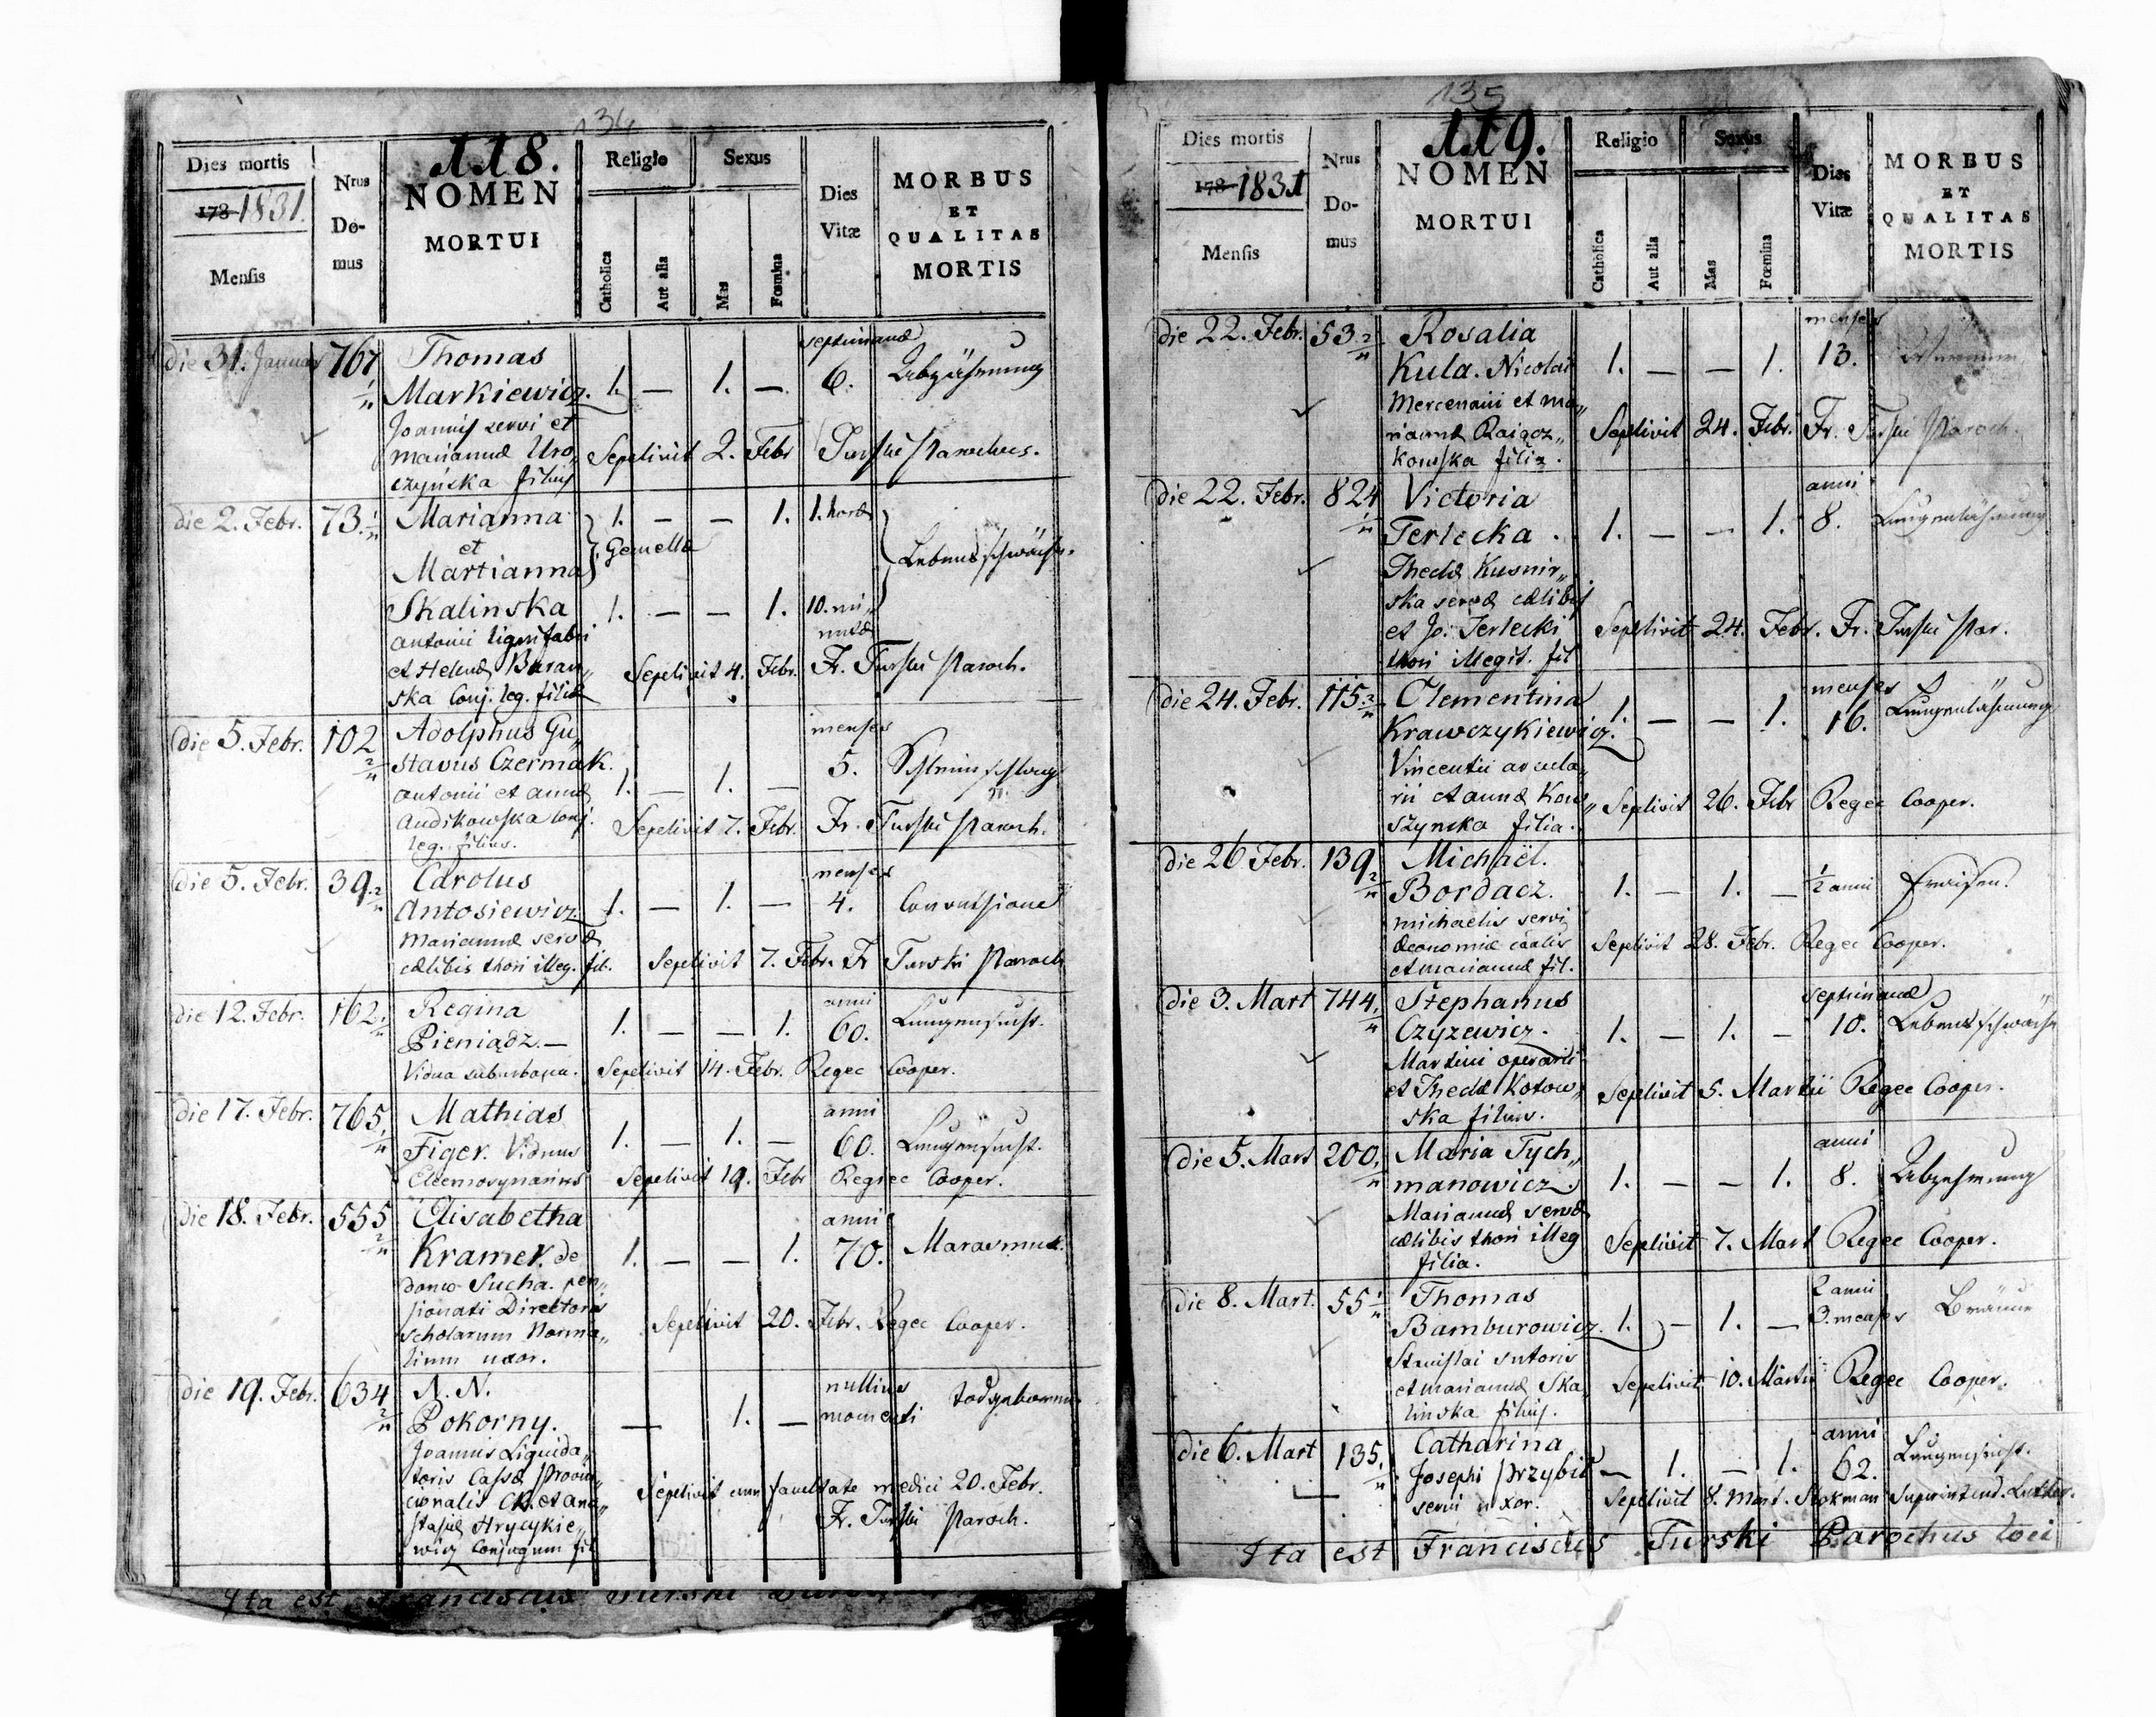 134
118.
Dies mortis
178 1831.
Mensis
Nrus
Do-
mus
NOMEN
MORTUI
Religio
Catholica
Aut alia
Sexus
Mas
Fœmina
Dies
Vitæ
MORBUS
ET
QUALITAS
MORTIS
die 31. Januar 767 1/n Thomas
Markiewicz. 1. — 1. — septimanæ 6. Abzährung
Joannis servi et
mariannæ Uro„
czyńska filius
Sepelivit 2. Febr Turski Parochus.
die 2. Febr. 73. 1/n Marianna 1. — — 1. 1. hora
et
Martianna Gemellæ Lebensschwäche.
Skalinska 1. — — 1. 10. mi„
nutæ
antonii lignifabri
et Helenæ Baran„
ska Conj. leg. filiæ
Sepelivit 4. Febr. Fr. Turski Paroch.
die 5. Febr. 102 2/n Adolphus Gu„
stavus Czermak. 1. — 1. — menses 5.
antonii et annæ
Andikowska Conj.
leg. filius.
Sepelivit 7. Febr. Fr. Turski Paroch.
die 5. Febr. 39. 2/n Carolus
Antosiewicz 1. — 1. — menses 4. Convulsione
Mariannæ servæ
cælibis thori illeg. fil.
Sepelivit 7. Febr. Fr Turski Paroch
die 12. Febr. 162. 1/n Regina
Pieniądz. — 1. — — 1. anni 60. Lungensucht.
Vidua suburbana.
Sepelivit 14. Febr. Regec Cooper.
die 17. Febr. 765. 1/n Mathias
Figer. Viduus 1. — 1. — anni 60. Lungensucht.
Eleemosynarius
Sepelivit 19. Febr Regec Cooper.
die 18. Febr. 555 2/n Elisabetha
Kramer. de 1. — — 1. anni 70. Marasmus.
domo Sucha. pen„
sionati Directoris
scholarum Norma„
lium uxor.
Sepelivit 20. Febr. Regec Cooper.
die 19. Febr. 634 2/n N. N.
Pokorny. — 1. — nullius
momenti todtgeboren
Joannis Liquida„
toris Cassæ Provin„
cionalis CR. et ana„
stasiæ Hrycykie„
wicz Conjugum fil
Sepelivit cum facultate medici 20. Febr.
Fr. Turski Paroch.
Ita est Franciscus Turski
135
119.
Dies mortis
178 1831
Mensis
Nrus
Do-
mus
NOMEN
MORTUI
Religio
Catholica
Aut alia
Sexus
Mas
Fœmina
Dies
Vitæ
MORBUS
ET
QUALITAS
MORTIS
die 22. Febr. 53. 2/n Rosalia
Kula. Nicolai 1. — — 1. menses 13.
Mercenarii et ma„
riannæ Raigoz„
kowska filia.
Sepelivit 24. Febr. Fr. Turski Paroch.
die 22. Febr. 824 1/n Victoria
Terlecka. 1. — — 1. anni 8. Lungenlähmung
Theclæ Kusnir„
ska servæ cælibis
et Jo. Terlecki
thori illegit. fil
Sepelivit 24. Febr. Fr. Turski Par.
die 24. Febr. 115. 2/n Clementina
Krawczykiewicz. 1. — — 1. menses 16. Lungenlähmung
Vincentii arcula„
rii et annæ Kow„
szynska filia.
Sepelivit 26. Febr Regec Cooper.
die 26 Febr. 139 2/n Michaël.
Bordacz. 1. — 1. — 1/2 anni Fraisen.
michaelis servi
œconomiæ
et mariannæ fil.
Sepelivit 28. Febr. Regec Cooper.
die 3. Mart 744. 1/n Stephanus
Czyzewicz. 1. — 1. — septimanæ 10. Lebensschwäche
Martini operarii
et Theclæ Kotow„
ska filius.
Sepelivit 5. Martii Regec Cooper.
die 5. Mart 200. 1/n Maria Tych„
manowicz. 1. — — 1. anni 8. Abzehrung
Mariannæ servæ
cælibis thori illeg
filia.
Sepelivit 7. Mart Regec Cooper.
die 8. Mart. 55 1/n Thomas
Bamburowicz. 1. — 1. — 2 anni
3. menses Bräune
Stanislai sutoris
et mariannæ Ska„
linska filius.
Sepelivit 10. Martii Regec Cooper.
die 6. Mart 135. 1/n Catharina
Josephi Przybił — 1. — 1. anni 62. Lungensucht.
servi uxor.
Sepelivit 8. Mart. Stokman Superintend. Luther.
Ita est Franciscus Turski Parochus loci